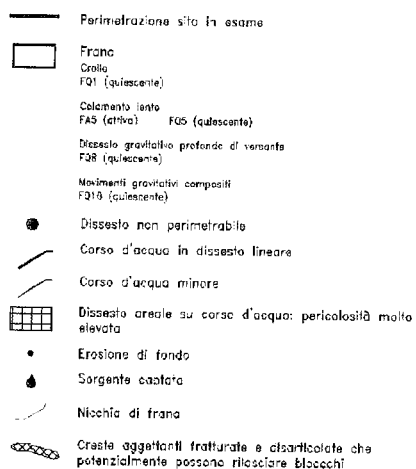 Perimetrazione sito in esame
Frana
Crollo
FQ1 (quiescente)
Colamento lento
FA5 (attiva) FQ5 (quiescente)
Dissesto gravitativo profondo di versante
FQ8 (quiescente)
Movimenti gravitativi compositi
FQ10 (quiescente)
Dissesto non perimetrabile
Corso d'acqua in dissesto lineare
Corso d'acqua minore
Dissesto areale su corso d'acqua: pericolosità molto
elevata
Erosione di fondo
Sorgente captata
Nicchia di frana
Creste aggettanti fratturate e disarticolate che
potenzialmente possono rilasciare bloccchi